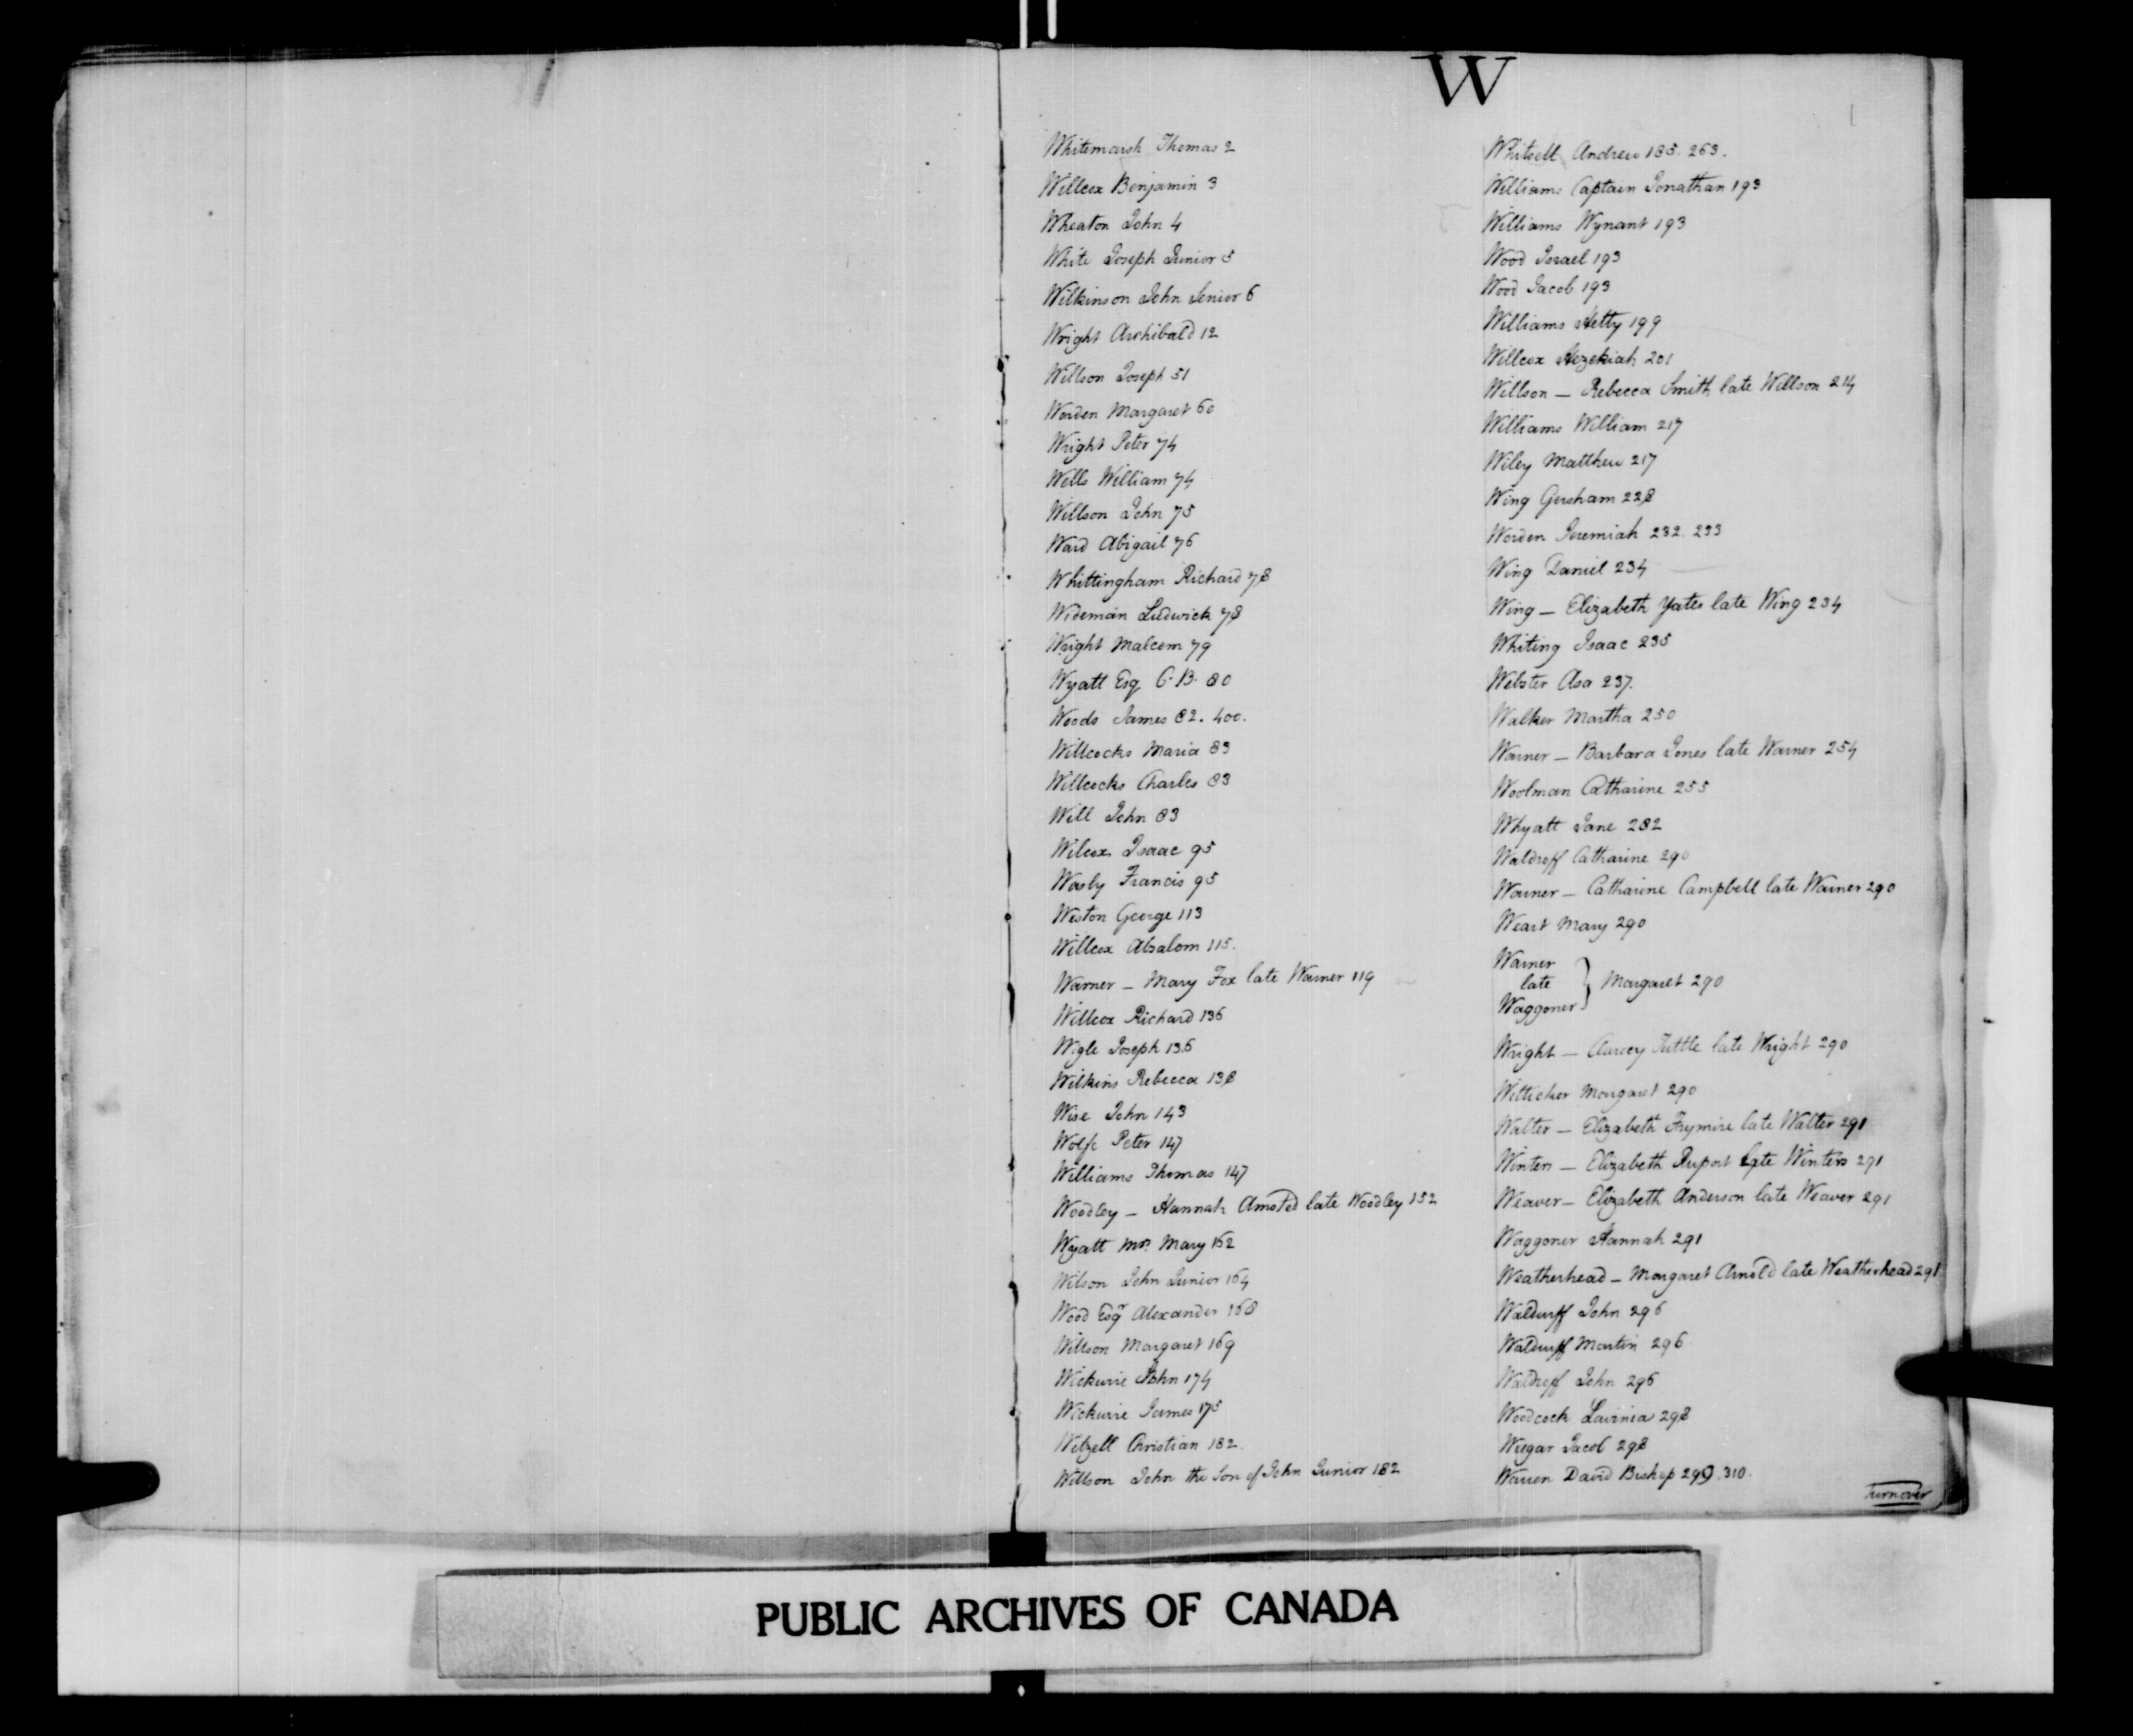 W
Whitemarsh Thomas 2
Willcox Benjamin 3
Wheaton John 4
White Joseph Junior 5
Wilkinson John Senior 6
Wright Archibald 12
Willson Joseph 51
Worden Margaret 60
Wright Peter 74
Wells William 74
Willson John 75
Ward Abigail 76
Whittingham Richard 78
Wideman Ludwick 78
Wright Malcom 79
Wyatt Esq C. B. 80
Woods James 82. 400.
Willcocks Maria 83
Willcocks Charles 83
Will John 83
Wilcox Isaac 95
Wasly Francis 95
Weston George 113
Willcox Absalom 115.
Warner — Mary Fox late Warner 119
Willcox Richard 136
Wigle Joseph 136
Wilkins Rebecca 138
Wise John 143
Wolfe Peter 147
Williams Thomas 147
Woodley — Hannah Amsted late Woodley 152
Wyatt Mrs. Mary 162
Wilson John Junior 164
Wood Esqr Alexander 168
Willson Margaret 169
Wickwire John 174
Wickwire James 175
Wetzell Christian 182.
Willson John the Son of John Junior 182
Whitsell Andrew 185. 263.
Williams Captain Jonathan 193
Williams Wynant 193
Wood Israel 193
Wood Jacob 193
Williams Hetty 199
Willcox Hezekiah 201
Willson — Rebecca Smith late Willson 214
Williams William 217
Wiley Matthew 217
Wing Gersham 228
Worden Jeremiah 232. 233
Wing Daniel 234
Wing — Elizabeth Yates late Wing 234
Whiting Isaac 235
Webster Asa 237.
Walker Martha 250
Warner — Barbara Jones late Warner 254
Woolman Catharine 255
Whyatt Jane 282
Waldroff Catharine 290
Warner — Catharine Campbell late Warner 290
Weart Mary 290
Warner
late } Margaret 290
Waggoner
Wright — Tuttle late Wright 290
Witticker Margaret 290
Walter — Elizabeth Frymire late Walter 291
Winters — Elizabeth Ruport late Winters 291
Weaver — Elizabeth Anderson late Weaver 291
Waggoner Hannah 291
Weatherhead — Margaret Arnold late Weatherhead 291
Waldruff John 296
Waldruff Martin 296
Waldroff John 296
Woodcock Lavinia 298
Wiegar Jacob 298
Warren David Bishop 299. 310.
Turnover
PUBLIC ARCHIVES OF CANADA